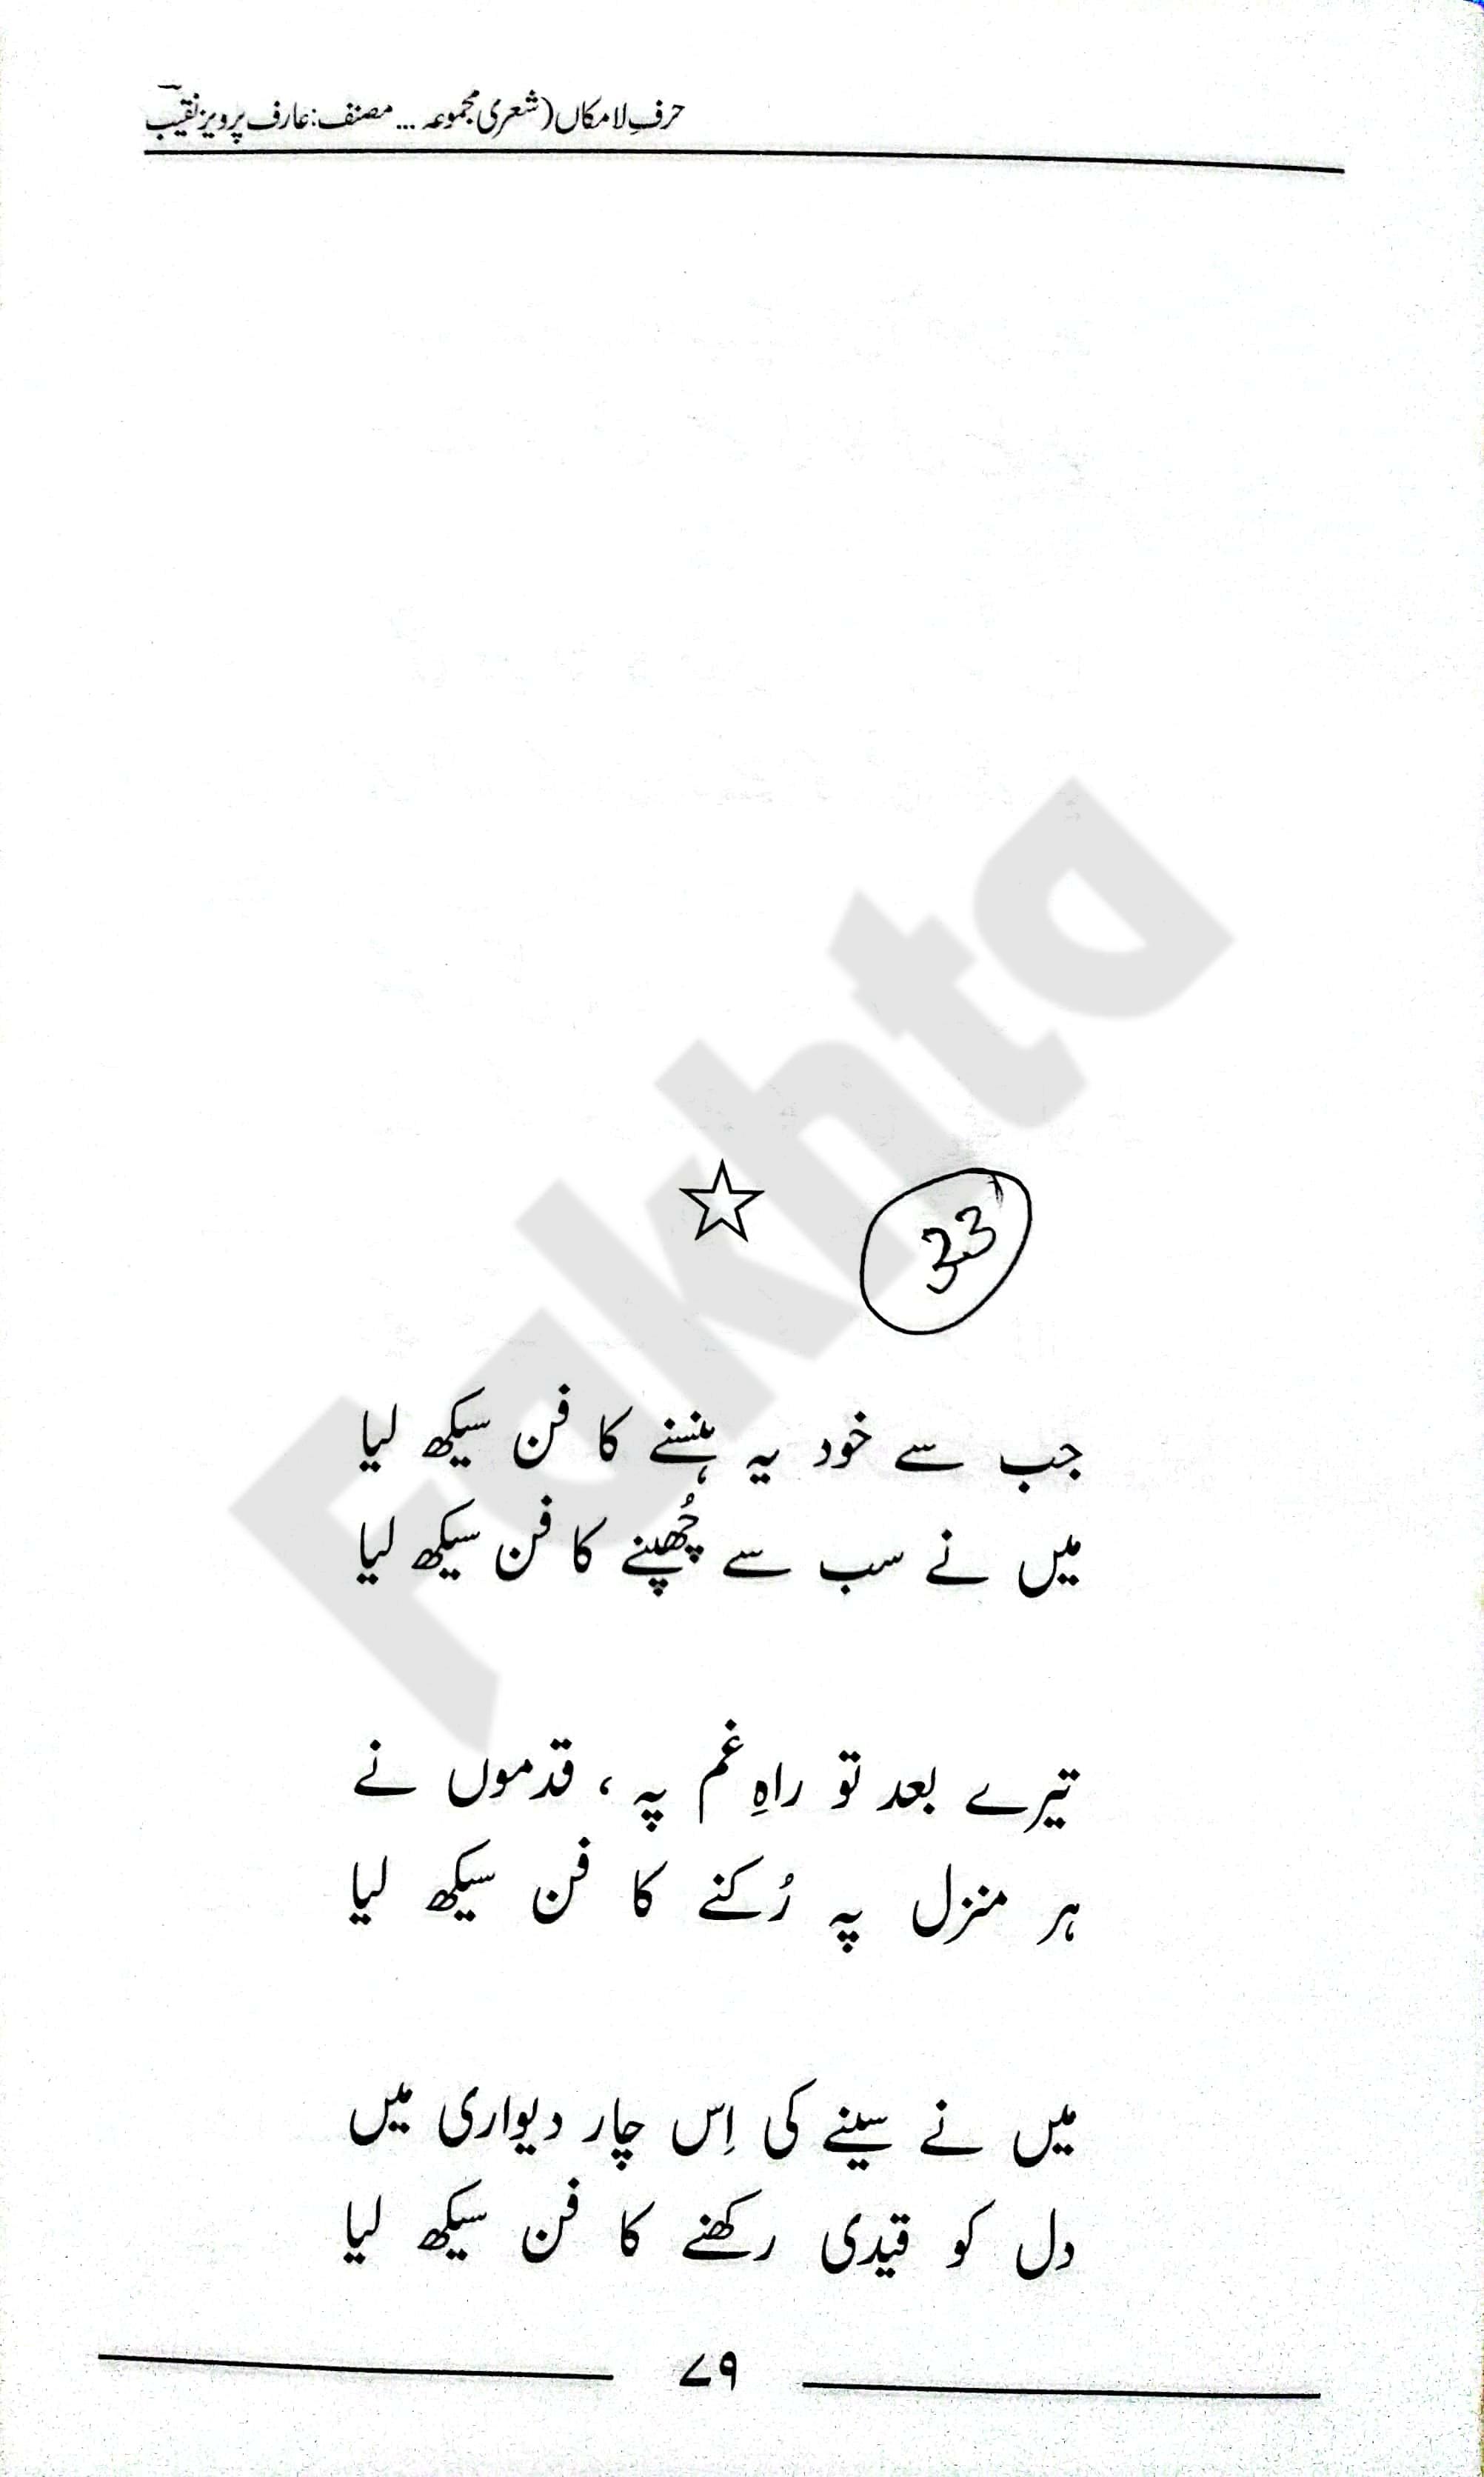 حرفِ لامکاں (شعری مجموعہ ... مصنف: عارف پرویز نقیب
33
جب سے خود یہ ہنسنے کا فن سیکھ لیا
میں نے سب سے چُھپنے کا فن سیکھ لیا
تیرے بعد تو راہِ غم پہ ، قدموں نے
ہر منزل پہ رُکنے کا فن سیکھ لیا
میں نے سینے کی اِس چار دیواری میں
دل کو قیدی رکھنے کا فن سیکھ لیا
۷۹
Fakhta